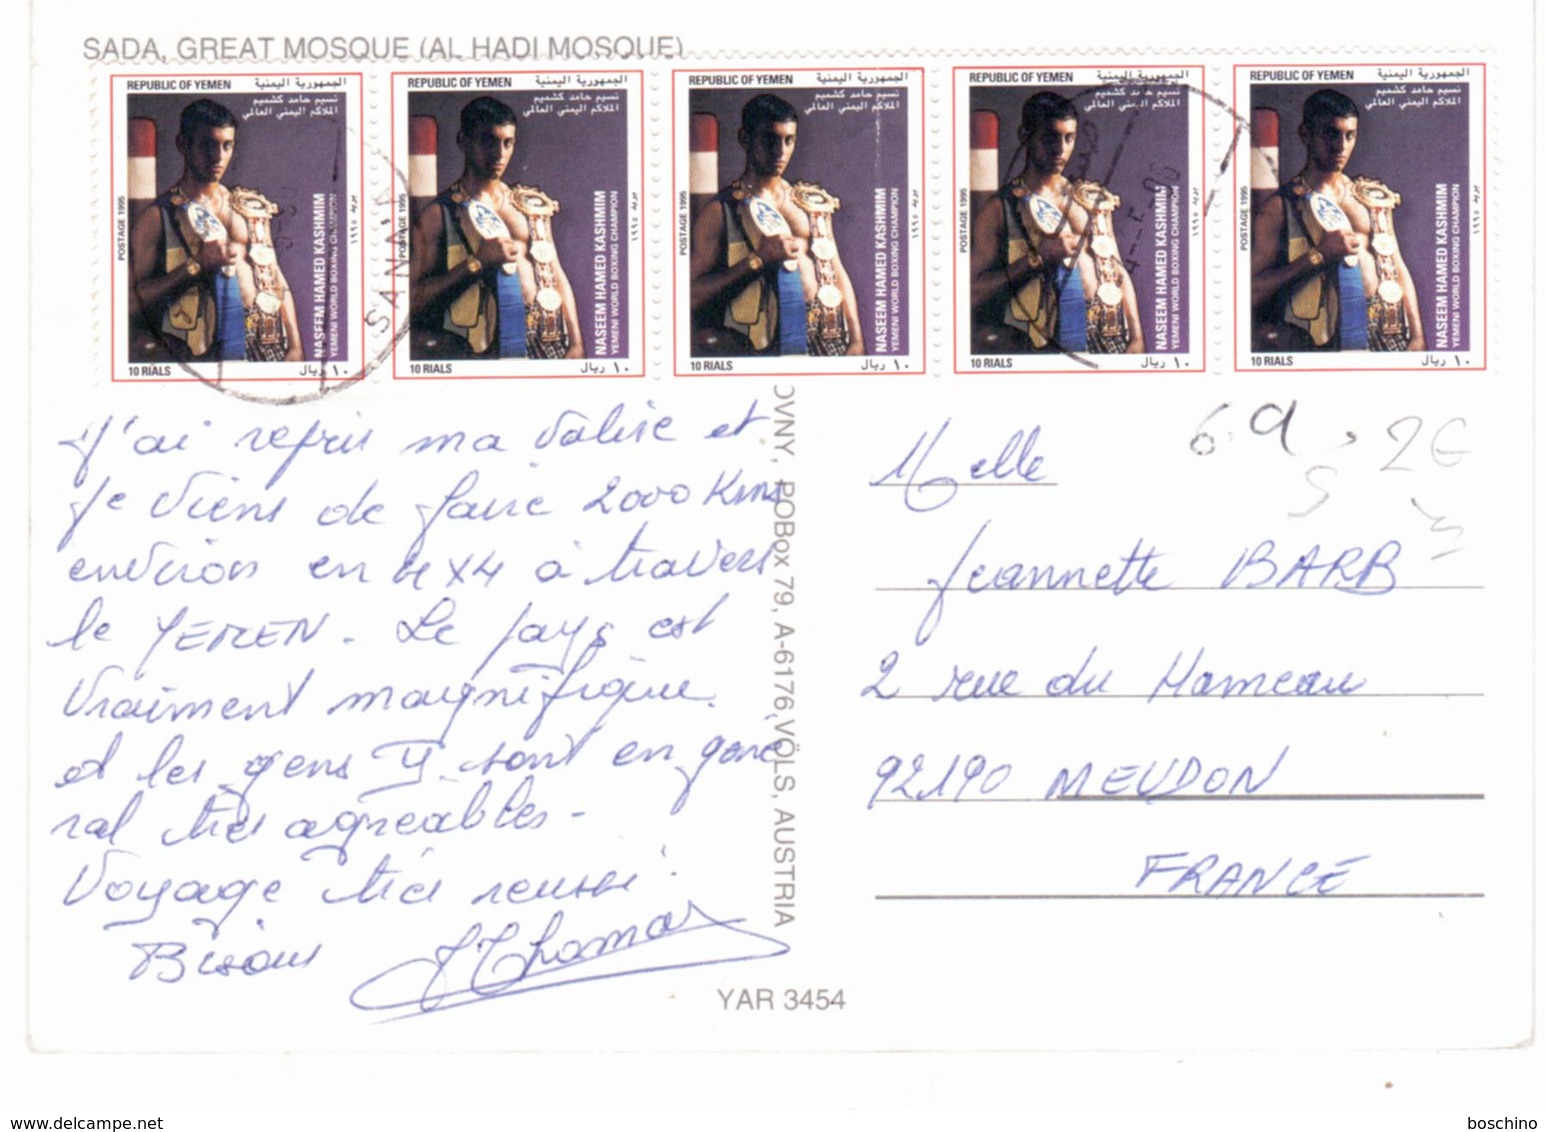 SADA, GREAT MOSQUE (AL HADI MOSQUE)
REPUBLIC OF YEMEN الجمهورية اليمنية
نسيم حامد كشميم
الملاكم اليمني العالمي
POSTAGE 1995
NASEEM HAMED KASHMIM
YEMENI WORLD BOXING CHAMPION
بريد ١٩٩٥
10 RIALS ١٠ ريال
REPUBLIC OF YEMEN الجمهورية اليمنية
نسيم حامد كشميم
الملاكم اليمني العالمي
POSTAGE 1995
NASEEM HAMED KASHMIM
YEMENI WORLD BOXING CHAMPION
بريد ١٩٩٥
10 RIALS ١٠ ريال
REPUBLIC OF YEMEN الجمهورية اليمنية
نسيم حامد كشميم
الملاكم اليمني العالمي
POSTAGE 1995
NASEEM HAMED KASHMIM
YEMENI WORLD BOXING CHAMPION
بريد ١٩٩٥
10 RIALS ١٠ ريال
REPUBLIC OF YEMEN الجمهورية اليمنية
نسيم حامد كشميم
الملاكم اليمني العالمي
POSTAGE 1995
NASEEM HAMED KASHMIM
YEMENI WORLD BOXING CHAMPION
بريد ١٩٩٥
10 RIALS ١٠ ريال
REPUBLIC OF YEMEN الجمهورية اليمنية
نسيم حامد كشميم
الملاكم اليمني العالمي
POSTAGE 1995
NASEEM HAMED KASHMIM
YEMENI WORLD BOXING CHAMPION
بريد ١٩٩٥
10 RIALS ١٠ ريال
SANA'A
J'ai repris ma valise et
je viens de faire 2000 Kms
environ en 4x4 à travers
le YEMEN - Le pays est
vraiment magnifique.
et les gens y sont en géné
ral très agréables -
Voyage très reussi.
Bisous
JThomas
OVNY, POBox 79, A-6176 VÖLS, AUSTRIA
YAR 3454
2€
Melle
Jeannette BARB
2 rue du Hameau
92190 MEUDON
FRANCE
boschino